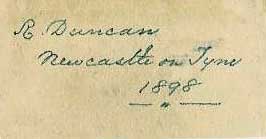 R. Duncan
Newcastle on Tyne
1898